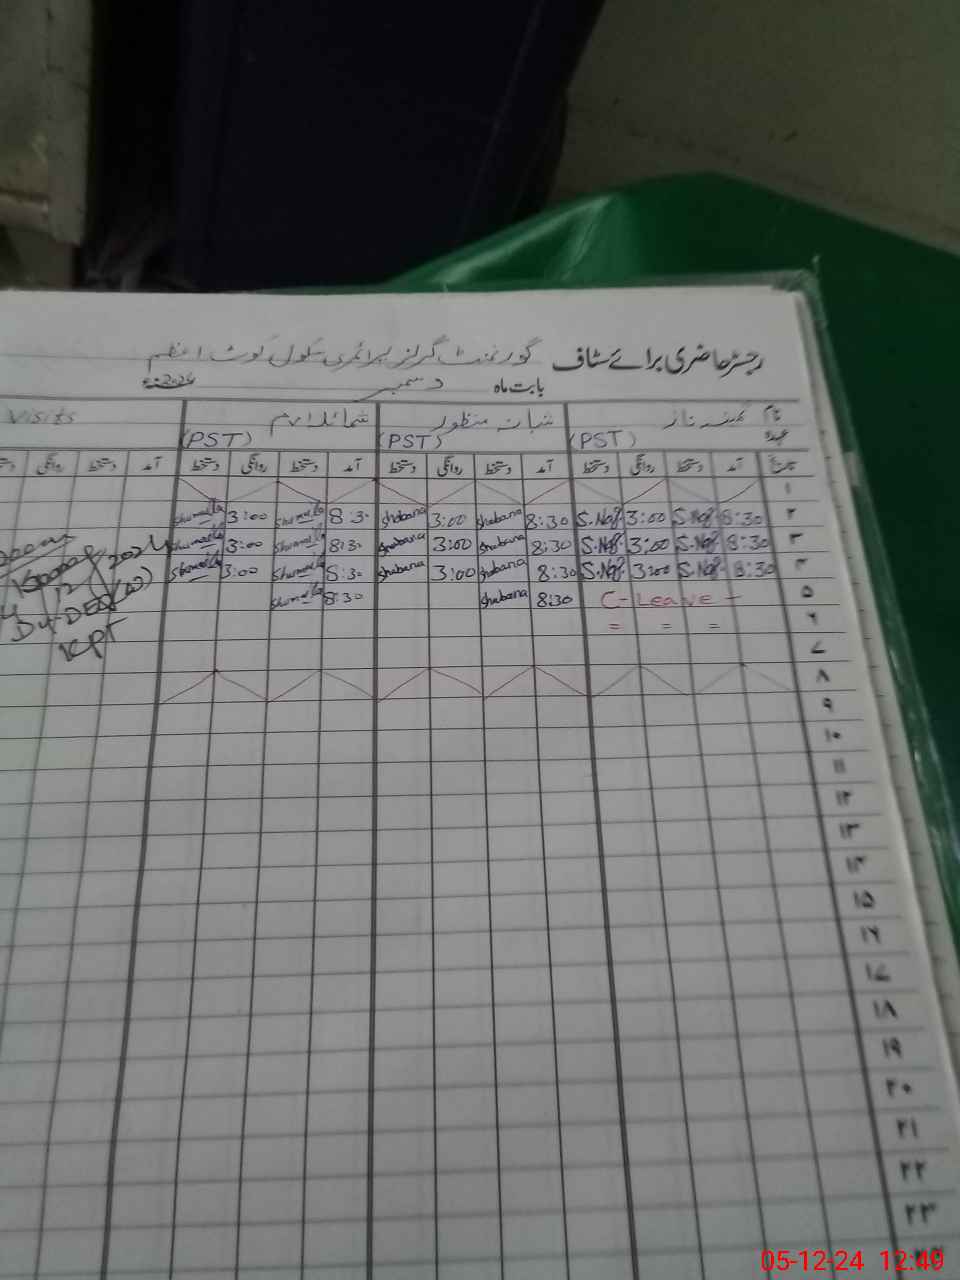 رجسٹر حاضری برائے سٹاف گورنمنٹ گرلز پرائمری سکول کوٹ اعظم
بابت ماہ دسمبر 2024ء
نام ناز شبانہ منظور شمائلہ ارم Visits
عہدہ (PST) (PST) (PST)
تاریخ آمد دستخط روانگی دستخط آمد دستخط روانگی دستخط آمد دستخط روانگی دستخط آمد دستخط روانگی دستخط
۱
۲ 8:30 S.Naz 3:00 S.Naz 8:30 Shabana 3:00 Shabana 8:30 Shumaila 3:00 Shumaila
۳ 8:30 S.Naz 3:00 S.Naz 8:30 Shabana 3:00 Shabana 8:30 Shumaila 3:00 Shumaila
۴ 8:30 S.Naz 3:00 S.Naz 8:30 Shabana 3:00 Shabana 8:30 Shumaila 3:00 Shumaila
۵ C-Leave - 8:30 Shabana 8:30 Shumaila
۶ = = =
۷
۸
۹
۱۰
۱۱
۱۲
۱۳
۱۴
۱۵
۱۶
۱۷
۱۸
۱۹
۲۰
۲۱
۲۲
۲۳
۲۴
12/2024
Dy-DEO(W)
KPT
05-12-24 12:49